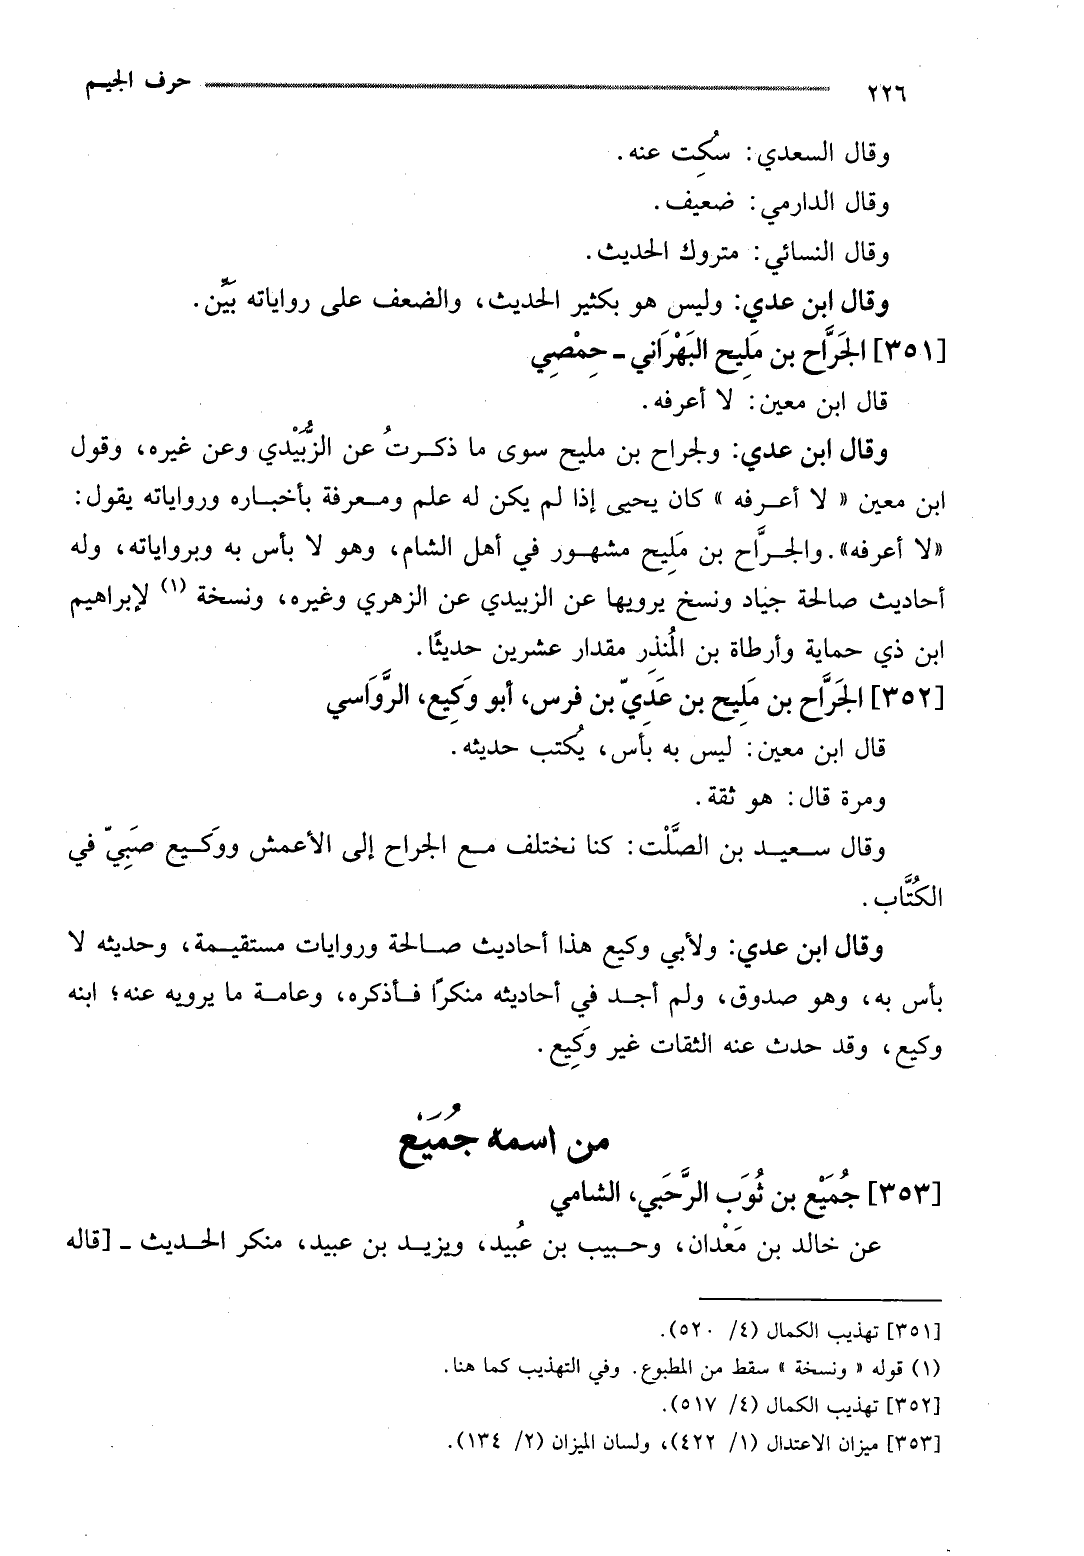 ٢٢٦ حرف الجيم
وقال السعدي: سُكِت عنه.
وقال الدارمي: ضعيف.
وقال النسائي: متروك الحديث.
وقال ابن عدي: وليس هو بكثير الحديث، والضعف على رواياته بيِّن.
[٣٥١] الجَرَّاح بن مَلِيح البَهْرَاني ـ حِمْصِي
قال ابن معين: لا أعرفه.
وقال ابن عدي: ولجراح بن مليح سوى ما ذكرتُ عن الزُّبَيْدي وعن غيره، وقول
ابن معين « لا أعرفه » كان يحيى إذا لم يكن له علم ومعرفة بأخباره ورواياته يقول:
«لا أعرفه». والجرَّاح بن مَلِيح مشهور في أهل الشام، وهو لا بأس به وبرواياته، وله
أحاديث صالحة جياد ونسخ يرويها عن الزبيدي عن الزهري وغيره، ونسخة (١) لإبراهيم
ابن ذي حماية وأرطاة بن المُنذِر مقدار عشرين حديثًا.
[٣٥٢] الجَرَّاح بن مَلِيح بن عَدِيّ بن فرس، أبو وَكِيع، الرَّوَاسي
قال ابن معين: ليس به بأس، يُكتب حديثه.
ومرة قال: هو ثقة.
وقال سعيد بن الصَّلْت: كنا نختلف مع الجراح إلى الأعمش ووَكيع صَبِيّ في
الكُتَّاب.
وقال ابن عدي: ولأبي وكيع هذا أحاديث صالحة وروايات مستقيمة، وحديثه لا
بأس به، وهو صدوق، ولم أجد في أحاديثه منكرًا فأذكره، وعامة ما يرويه عنه؛ ابنه
وكيع، وقد حدث عنه الثقات غير وَكِيع.
من اسمه جُمَيَع
[٣٥٣] جُمَيْع بن ثُوَب الرَّحَبي، الشامي
عن خالد بن مَعْدان، وحبيب بن عُبيد، ويزيد بن عبيد، منكر الحديث ـ [قاله
[٣٥١] تهذيب الكمال (٤/ ٥٢٠).
(١) قوله « ونسخة » سقط من المطبوع. وفي التهذيب كما هنا.
[٣٥٢] تهذيب الكمال (٤/ ٥١٧).
[٣٥٣] ميزان الاعتدال (١/ ٤٢٢)، ولسان الميزان (٢/ ١٣٤).